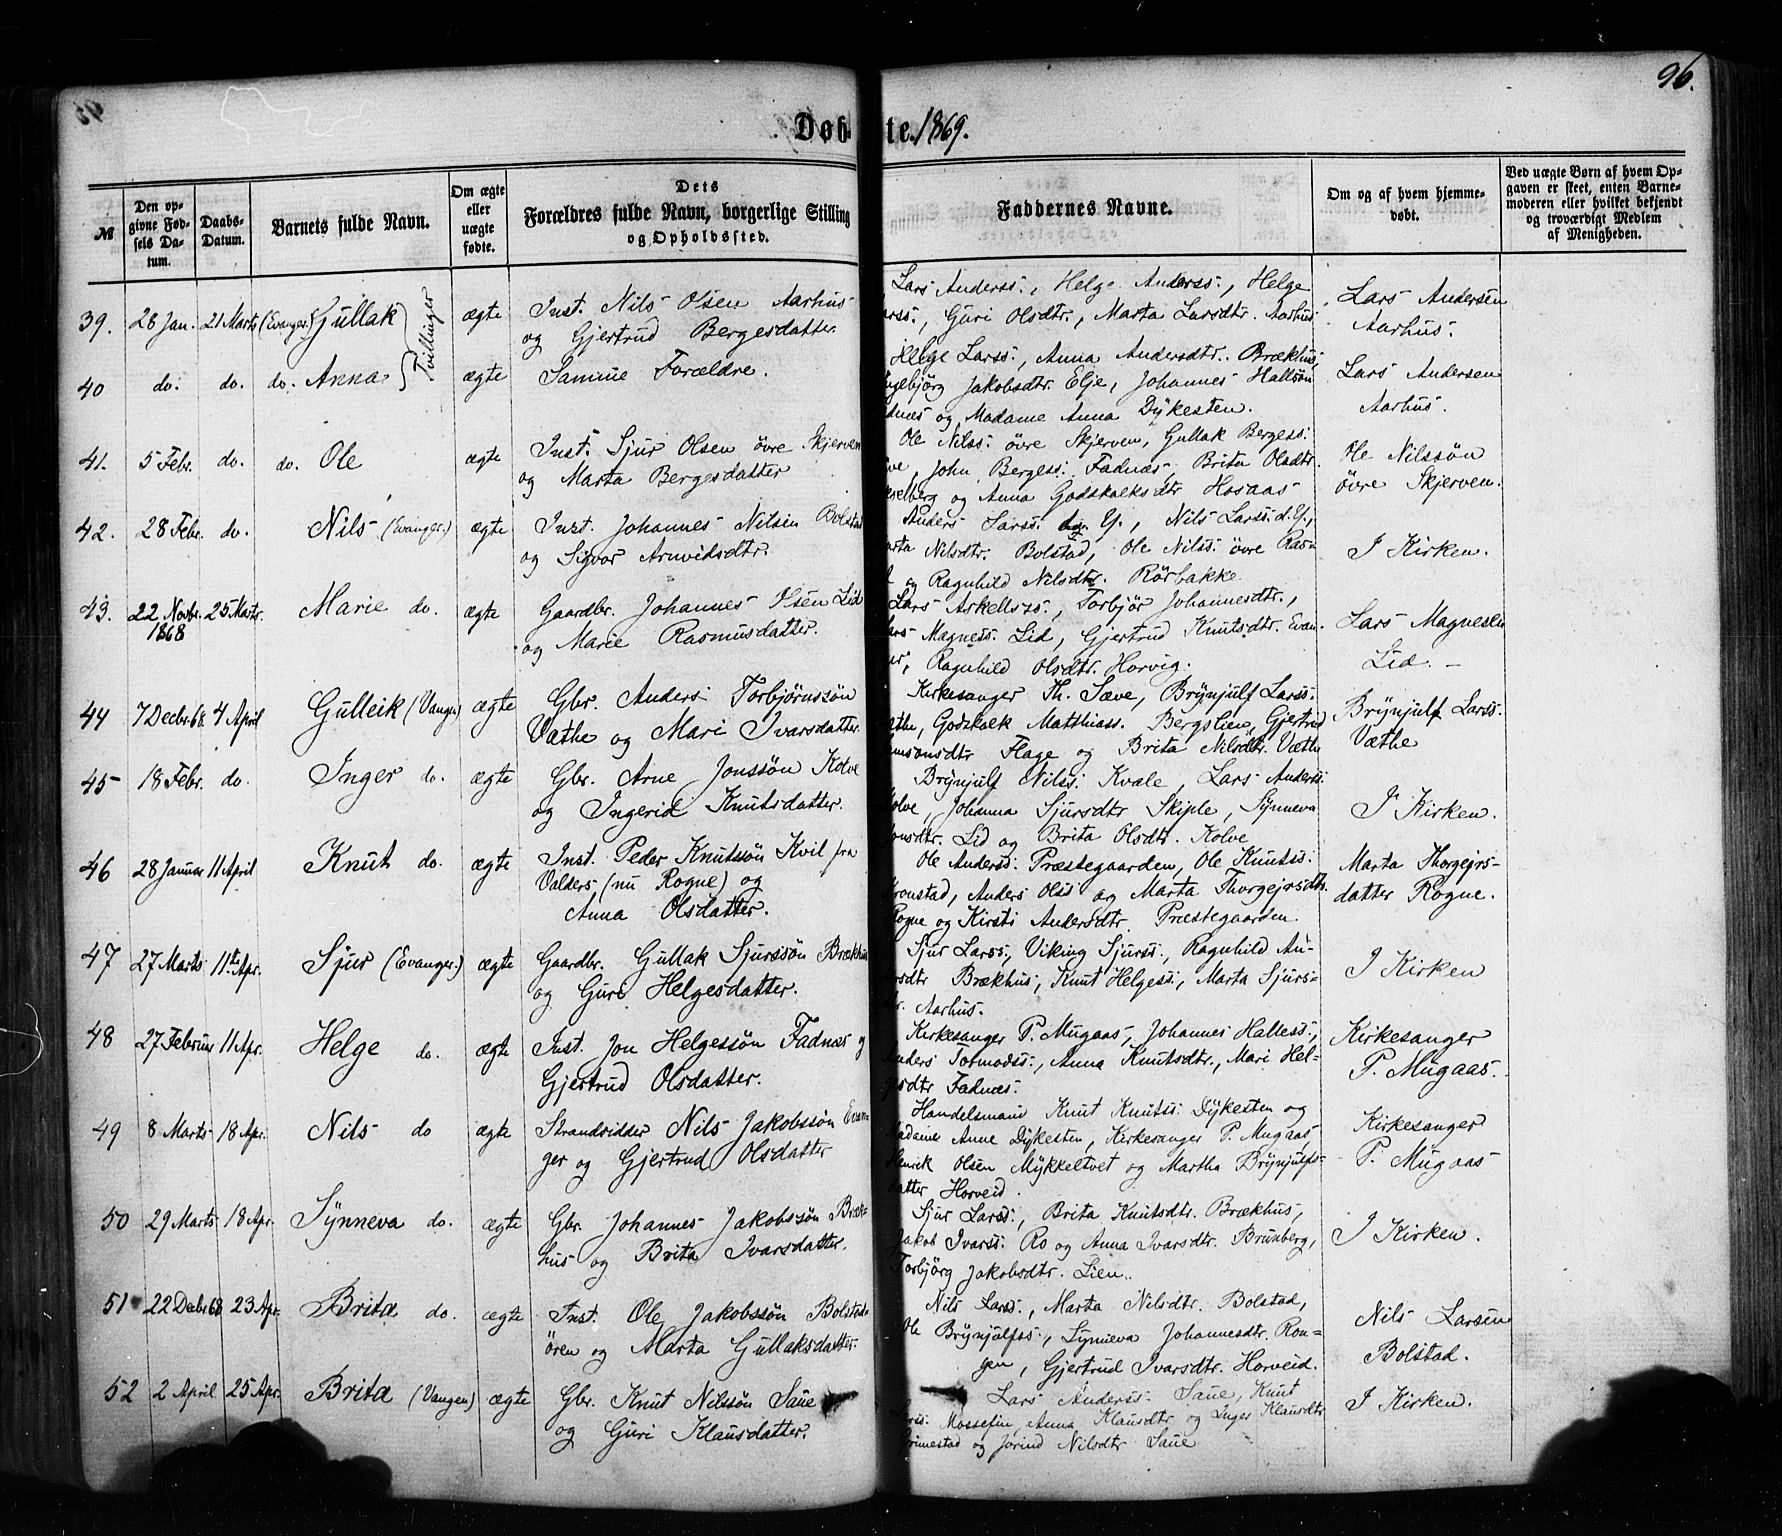 96.
Døbte. 1869.
№
Den opgivne Fødsels Datum.
Daabs-Datum.
Barnets fulde Navn.
Om ægte eller uægte fødte.
Dets Forældres fulde Navn, borgerlige Stilling og Opholdssted.
Faddernes Navne.
Om og af hvem hjemmedøbt.
Ved uægte Børn af hvem Opgaven er skeet, enten Barnemoderen eller hvilket bekjendt og troværdigt Medlem af Menigheden.
39. 28 Jan. 21 Marts (Evanger.) Gullak Tvillinger ægte
Inst. Nils Olsen Aarhus
og Gjertrud Bergesdatter
Lars Anderss:, Helge Anderss:, Helge
Guri Olsdtr., Marta Larsdtr. Aarhus
Lars Andersen
Aarhus.
40 do. do. do. Anna ægte
Samme Forældre.
Helge Larss:, Anna Andersdtr. Brækhus,
Jakobsdtr. Elje, Johannes Hallsøn
og Madame Anna Dykesten.
Lars Andersen
Aarhus.
41. 5 Febr. do. do. Ole ægte
Inst. Sjur Olsen øvre Skjerven
og Marta Bergesdatter
Ole Nilss: øvre Skjerven, Gullak Bergess:
John Bergess: Fadnæs, Brita Olsdtr.
og Anna Godskalksdtr Hosaas
Ole Nilssøn
øvre Skjerven.
42. 28 Febr. do. Nils (Evanger.) ægte
Inst. Johannes Nilsen Bolstad
og Sigvor Arnvidsdtr.
Anders Larss: Y., Nils Larss: d.Y.,
Nilsdtr. Bolstad, Ole Nilss: øvre
og Ragnhild Nilsdtr. Rörbakke
I Kirken.
43. 22 Novbr. 1868 25 Marts. Marie do. ægte
Gaardbr. Johannes Olsen Lid
og Marie Rasmusdatter.
Lars Askellss:, Torbjør Johannesdtr.,
Magness: Lid, Gjertrud Knutsdtr. Evan-
Ragnhild Olsdtr. Horvig.
Lars Magnesen
Lid.
44 7 Decbr. 68. 4 April Gulleik (Vangen) ægte
Gbr. Anders Torbjørnssøn
Væthe og Mari Ivarsdatter.
Kirkesanger Th. Sæve, Brynjulf Larss:
Godskalk Matthiass. Bergslien, Gjertrud
Flage og Brita Nilsdtr. Væthe
Brynjulf Larss.
Væthe
45 18 Febr. do. Inger do. ægte
Gbr. Arne Jonssøn Kolve
og Ingerid Knutsdatter.
Brynjulf Nilss: Kvale, Lars Anderss:
Kolve, Johanna Sjursdtr Skiple, Synneva
Lid og Brita Olsdtr. Kolve
I Kirken.
46 28 Januar 11 April Knut do. ægte
Inst. Peder Knutssøn Kvil fra
Valders, (nu Rogne) og
Anna Olsdatter.
Ole Anderss: Præstegaarden, Ole Knutss:
Anders Olss og Marta Thorgejrsdtr.
Rogne og Kirsti Andersdtr. Præstegaarden.
Marta Thorgejrs-
datter Rogne.
47 27 Marts 11te Apr. Sjur (Evanger.) ægte
Gaardbr. Gullak Sjurssøn Brækhus
og Guri Helgesdatter.
Sjur Larss:, Viking Sjurss:, Ragnhild An-
Brækhus, Knut Helgess:, Marta Sjurs-
Aarhus.
I Kirken
48 27 Februar 11 Apr. Helge do. ægte
Inst. Jon Helgessøn Fadnæs og
Gjertrud Olsdatter.
Kirkesanger P. Mugaas, Johannes Halless:,
Anders Tormodss:, Anna Knutsdtr., Mari Hel-
gesdtr Fadnæs.
Kirkesanger
P. Mugaas.
49 8 Marts 18 Apr. Nils do ægte
Strandsidder Nils Jakobssøn Evan-
ger og Gjertrud Olsdatter
Handelsmand Knut Knutss: Dykesten og
Madame Anne Dykesten, Kirkesanger P. Mugaas,
Henrik Olsen Mykkeltvet og Martha Brynjulfs-
datter Horveid.
Kirkesanger
P. Mugaas
50 29 Marts 18 Apr. Synneva do. ægte
Gbr. Johannes Jakobssøn Bræk-
hus og Brita Ivarsdatter.
Sjur Larss:, Brita Knutsdtr. Brækhus,
Jakob Ivarss: Ro og Anna Ivarsdtr. Brunberg,
Torbjörg Jakobsdtr. Lien.
I Kirken.
51 22 Decbr 68 23 Apr. Brita do. ægte
Inst. Ole Jakobssøn Bolstad-
øren og Marta Gullaksdatter.
Nils Larss:, Marta Nilsdtr. Bolstad,
Ole Brynjulfss:, Synneva Johannesdtr. Ron-
gen, Gjertrud Ivarsdtr. Horveid.
Nils Larsen
Bolstad.
52 2 April 25 Apr. Brita (Vangen) ægte
Gbr. Knut Nilssøn Saue
og Guri Klausdatter.
Lars Anderss: Saue, Knut
Mossefin, Anna Klausdtr og Inger Klausdtr
Grimestad og Jorind Nilsdtr Saue
I Kirken.